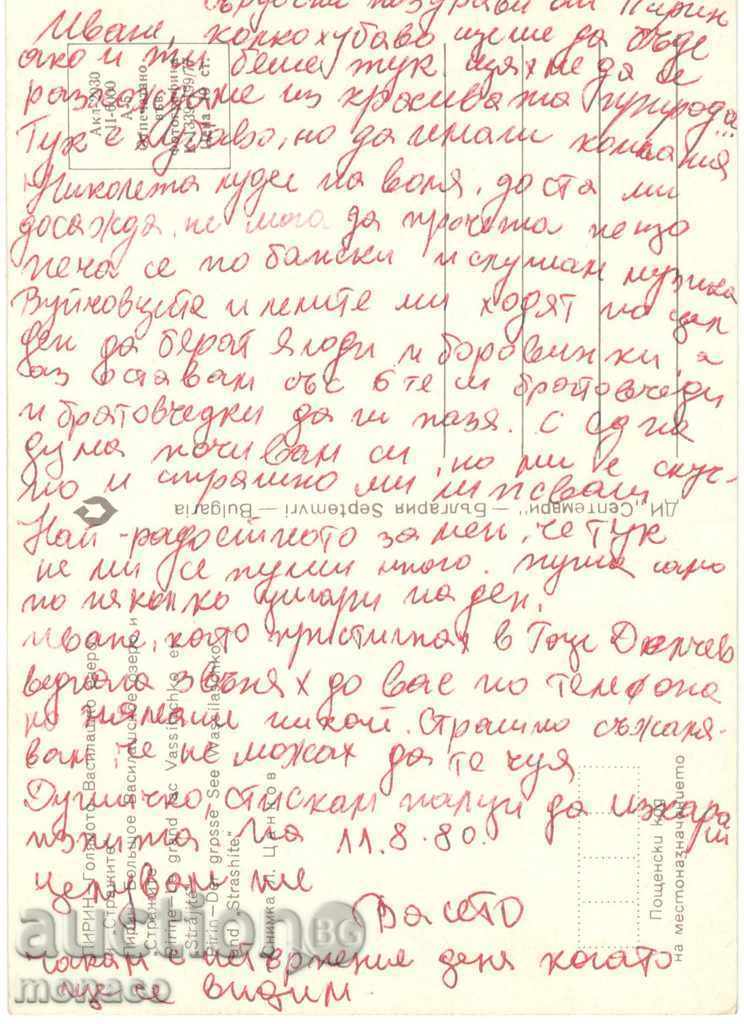 Сърдечни поздрави от Пирин
Иване, колко хубаво щеше да бъде
ако и ти беше тук щяхме да се
разхождаме из красивата природа...
Тук е хубаво, но да имаш компания
Николета лудее на воля, доста ми
досажда, не мога да прочета нещо
пека се по бански и слушам музика
Вуйновците и лелите ми ходят по цял
ден да берат ягоди и боровинки, а
аз оставам със 6 те ми братовчеди
и братовчедки да ги пазя. С една
дума почивам си, но ми е скуч-
но и страшно ми липсваш
Най-радостното за мен, че тук
не ми се пуши много. пуша само
по няколко цигари на ден.
Иване, като пристигнах в Гоце Делчев
веднага звънях до вас по телефона
но нямаше никой. Страшно съжаля-
вам, че не можах да те чуя
Душичко, стискам палци да изкараш
изпита на 11.8.80.
целувам те
Васето
чакам с нетърпение деня когато
ще се видим
Акл-2030
II-6000
А-Б
Отпечатано
във
Фотопечатница
Цена 10 ст.
ДИ „Септември" — България Septemvri — Bulgaria
ПИРИН—Голямото Василашко езеро и
„Стражите"
Пирин—Большое Василашское озеро и
„Стражите"
Pirine—Le grand lac Vassilachko et
„Strajité"
Pirin—Der grosse See „Wassilaschko"
und „Strashite"
Снимка Л. Цанков
Пощенски код
на местоназначението
auctionBG
monaco